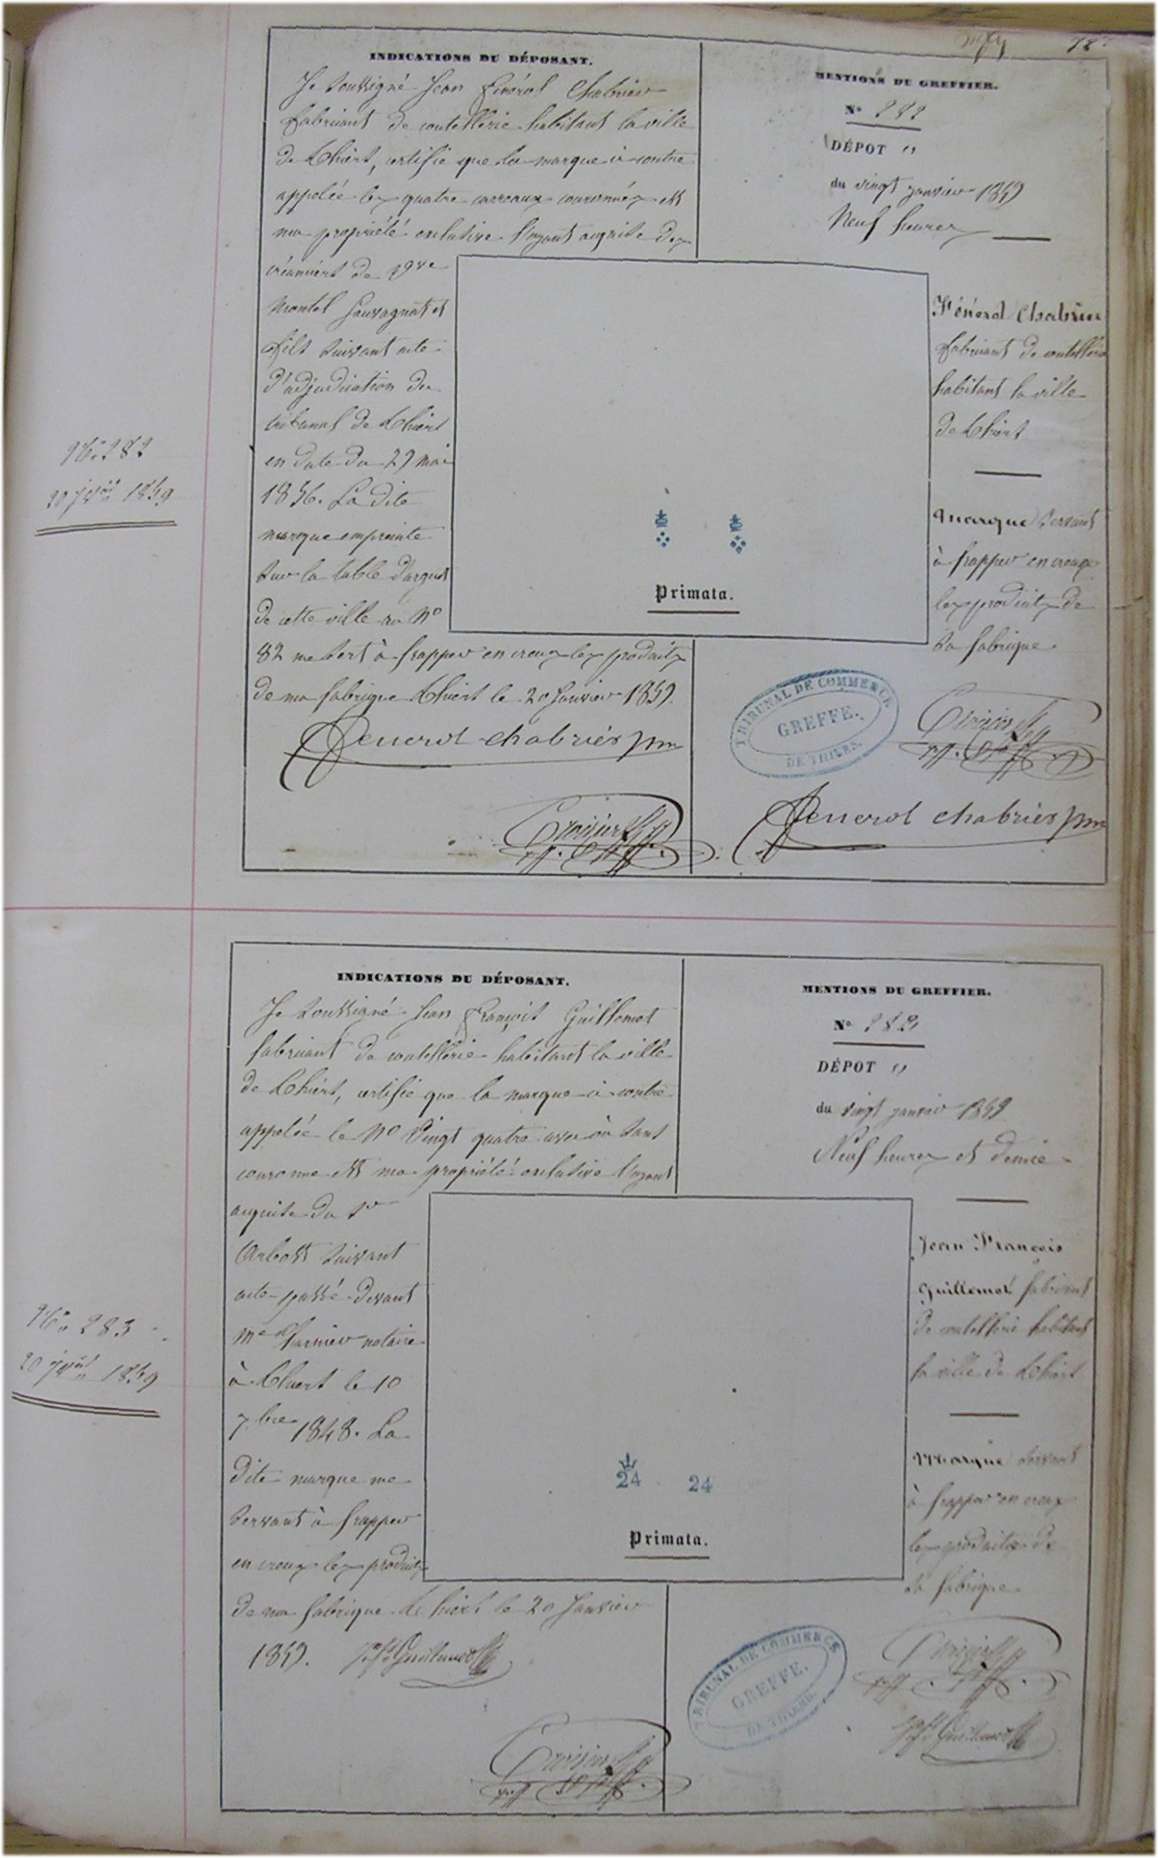 78
INDICATIONS DU DÉPOSANT.
Je soussigné Jean Fénérol Chabrier
fabricant de coutellerie habitant la ville
de Thiers, certifie que la marque ci contre
appelée les quatre carreaux couronnés est
ma propriété exclusive l'ayant acquise des
créanciers de
Montel Sauvagnat et
fils suivant acte
d'adjudication du
tribunal de Thiers
en date du 27 mai
1856. La dite
marque empreinte
sur la table d'argent
de cette ville au No
82 me sert à frapper en creux les produits
de ma fabrique Thiers le 20 Janvier 1859.
Fenerol chabrier
MENTIONS DU GREFFIER.
No 282
DÉPOT
du vingt janvier 1859
Neuf heures
Fénérol Chabrier
fabricant de coutellerie
habitant la ville
de Thiers
Marque servant
à frapper en creux
les produits de
sa fabrique
Primata.
TRIBUNAL DE COMMERCE
GREFFE.
DE THIERS.
Croizier
Fenerol chabrier
Croizier
No 282
20 jver 1859
INDICATIONS DU DÉPOSANT.
Je soussigné Jean François Guillemot
fabricant de coutellerie habitant la ville
de Thiers, certifie que la marque ci contre
appelée le No Vingt quatre avec ou sans
couronne est ma propriété exclusive l'ayant
acquise du sr
Arbost suivant
acte passé devant
Me notaire
à Thiers le 10
7bre 1848. La
dite marque me
servant à frapper
en creux les produits
de ma fabrique Thiers le 20 Janvier
1859. Guillemot
MENTIONS DU GREFFIER.
No 283
DÉPOT
du vingt janvier 1859
Neuf heures et demie
Jean François
Guillemot fabricant
de coutellerie habitant
la ville de Thiers
Marque servant
à frapper en creux
les produits de
sa fabrique
24 24
Primata.
TRIBUNAL DE COMMERCE
GREFFE.
DE THIERS.
Croizier
Guillemot
Croizier
No 283
20 jver 1859